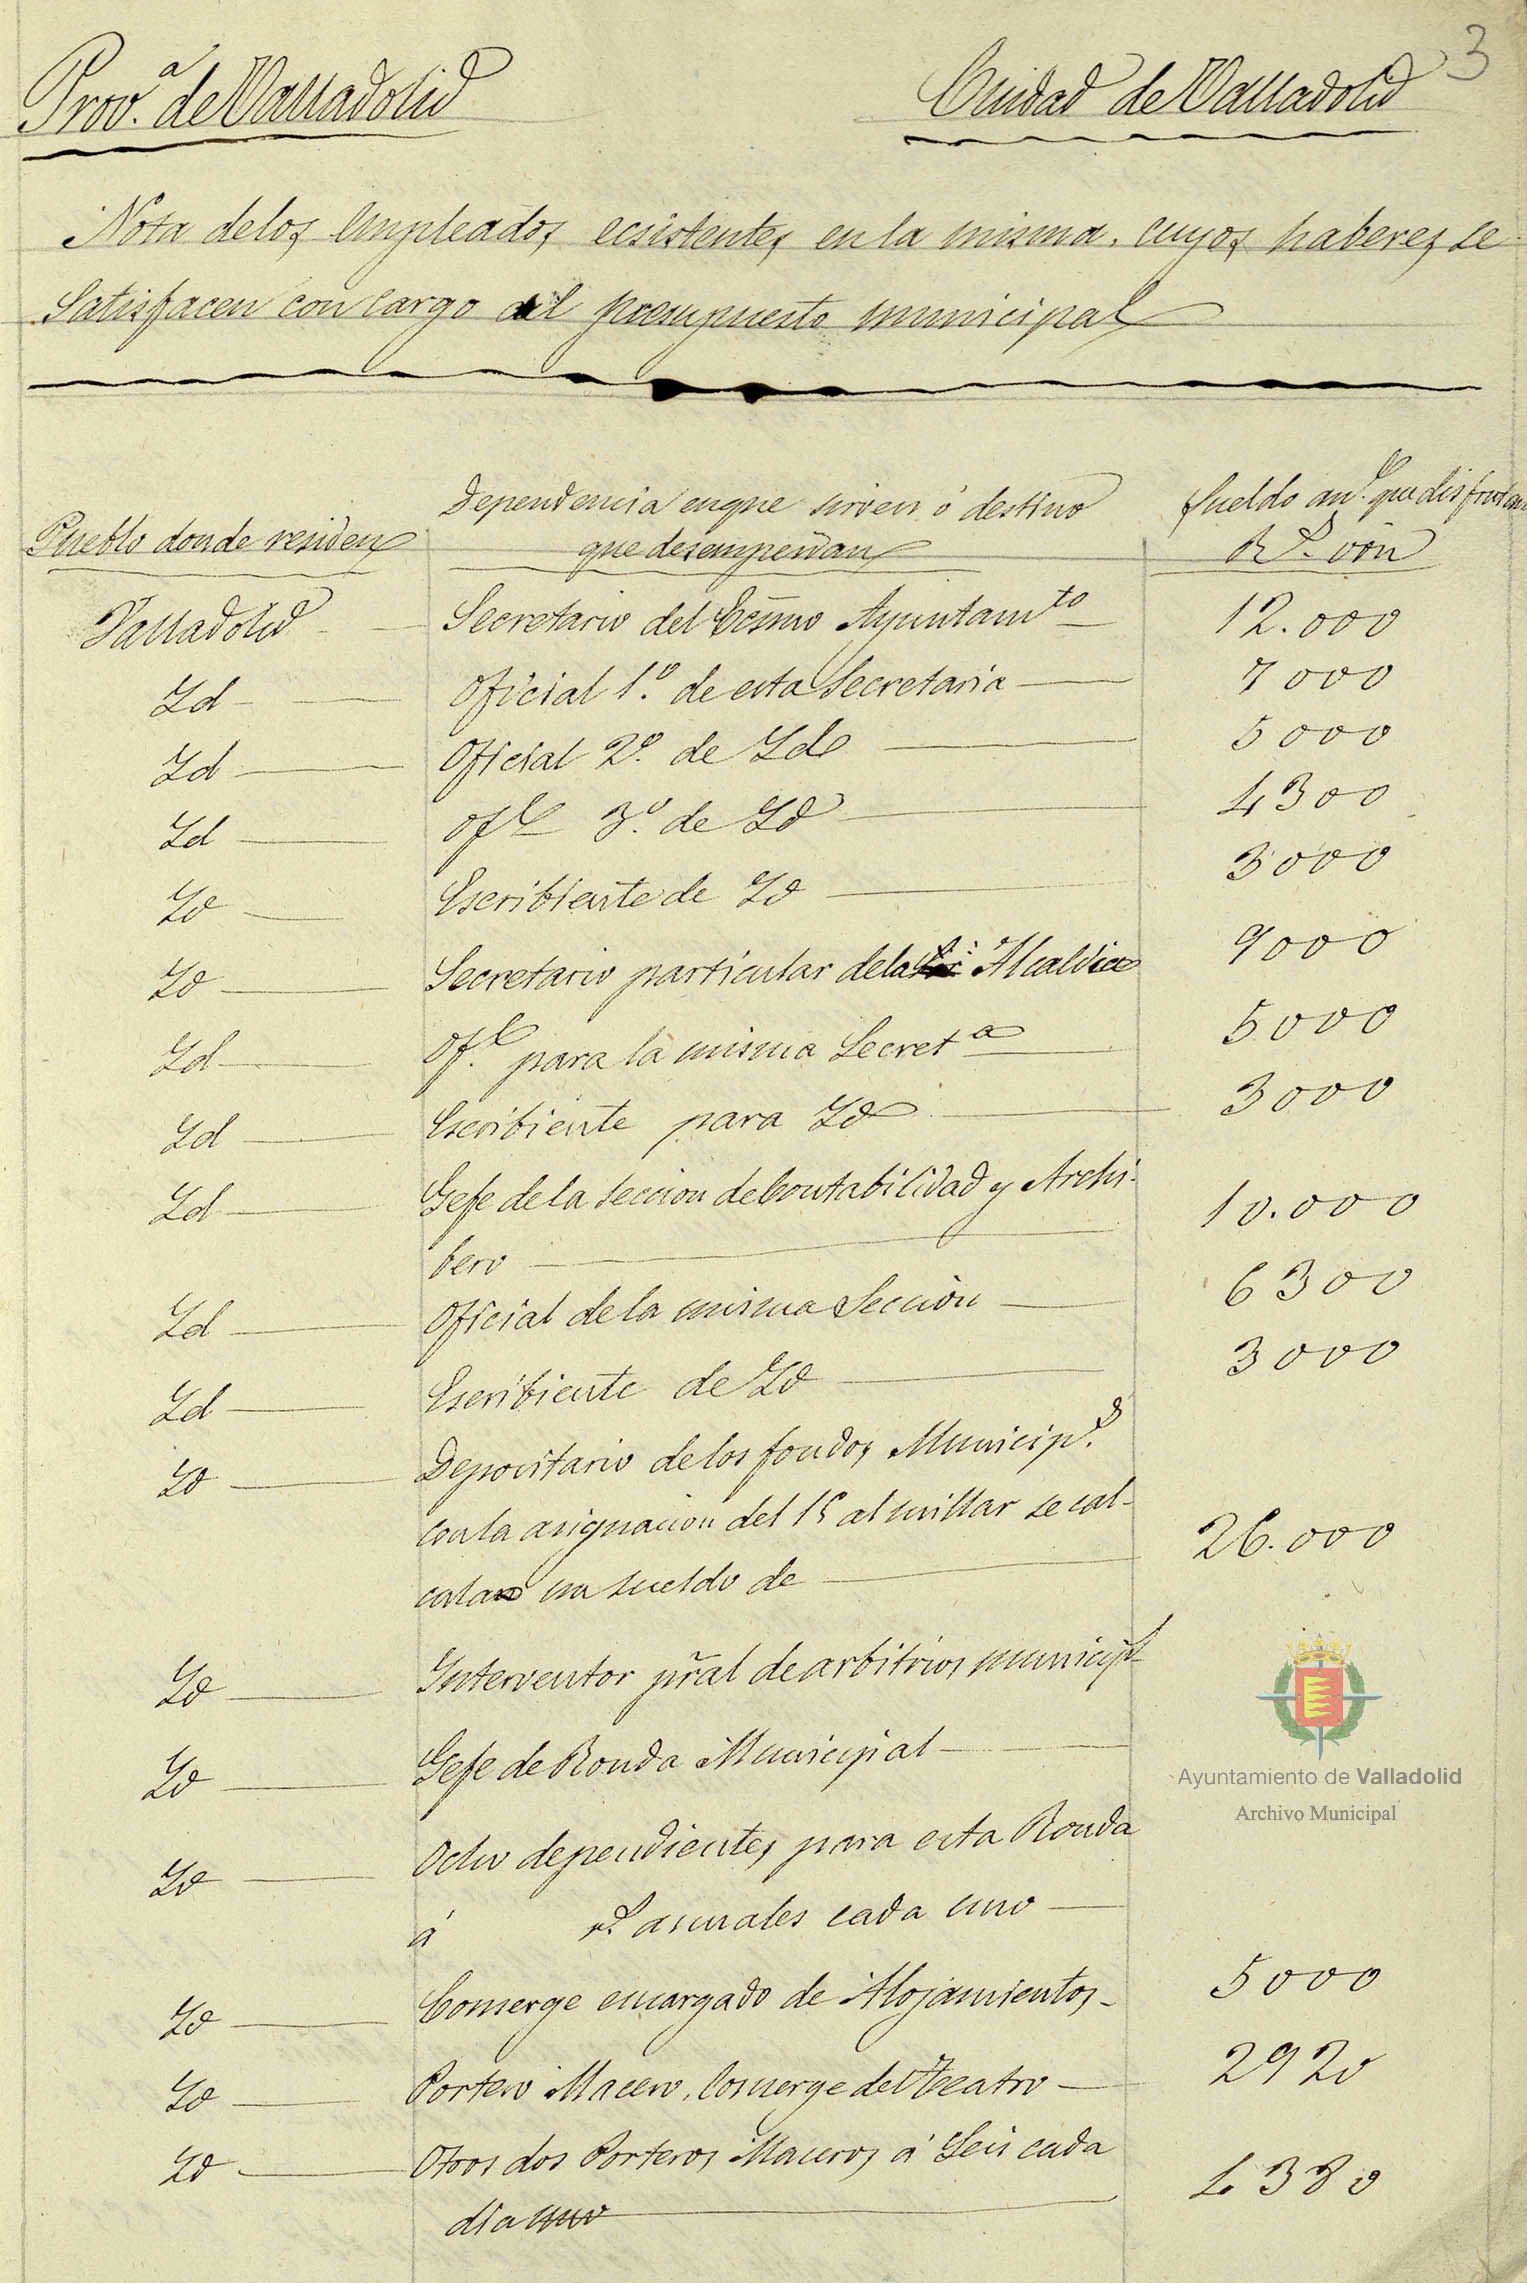 3
Prov.ª de Valladolid
Ciudad de Valladolid
Nota de los empleados ecsistentes en la misma, cuyos haberes se
satisfacen con cargo al presupuesto municipal
Pueblo donde residen
Dependencia en que sirven ó destino
que desempeñan
Sueldo an.l que disfrutan
R.s von
Valladolid Secretario del Ecsmo Ayuntam.to 12.000
Id Oficial 1.º de esta Secretaria 7000
Id Oficial 2.º de Id 5000
Id Of.l 3.º de Id 4300
Id Escribiente de Id 3000
Id Secretario particular de la Alcaldia 9000
Id Of.l para la misma Secret.a 5000
Id Escribiente para Id 3000
Id Gefe de la Seccion de Contabilidad y Archi-
bero 10.000
Id Oficial de la misma Seccion 6300
Id Escribiente de Id 3000
Id Depositario de los fondos Municip.s
con la asignacion del 15 al millar se cal-
cula un sueldo de 26.000
Id Interventor pral de arbitrios municip.s
Id Gefe de Ronda Municipal
Id Ocho dependientes para esta Ronda
á r.s anuales cada uno
Id Conserge encargado de Alojamientos 5000
Id Portero Macero, Conserge del Teatro 2920
Id Otros dos Porteros Maceros á Seis cada
dia uno 4380
Ayuntamiento de Valladolid
Archivo Municipal